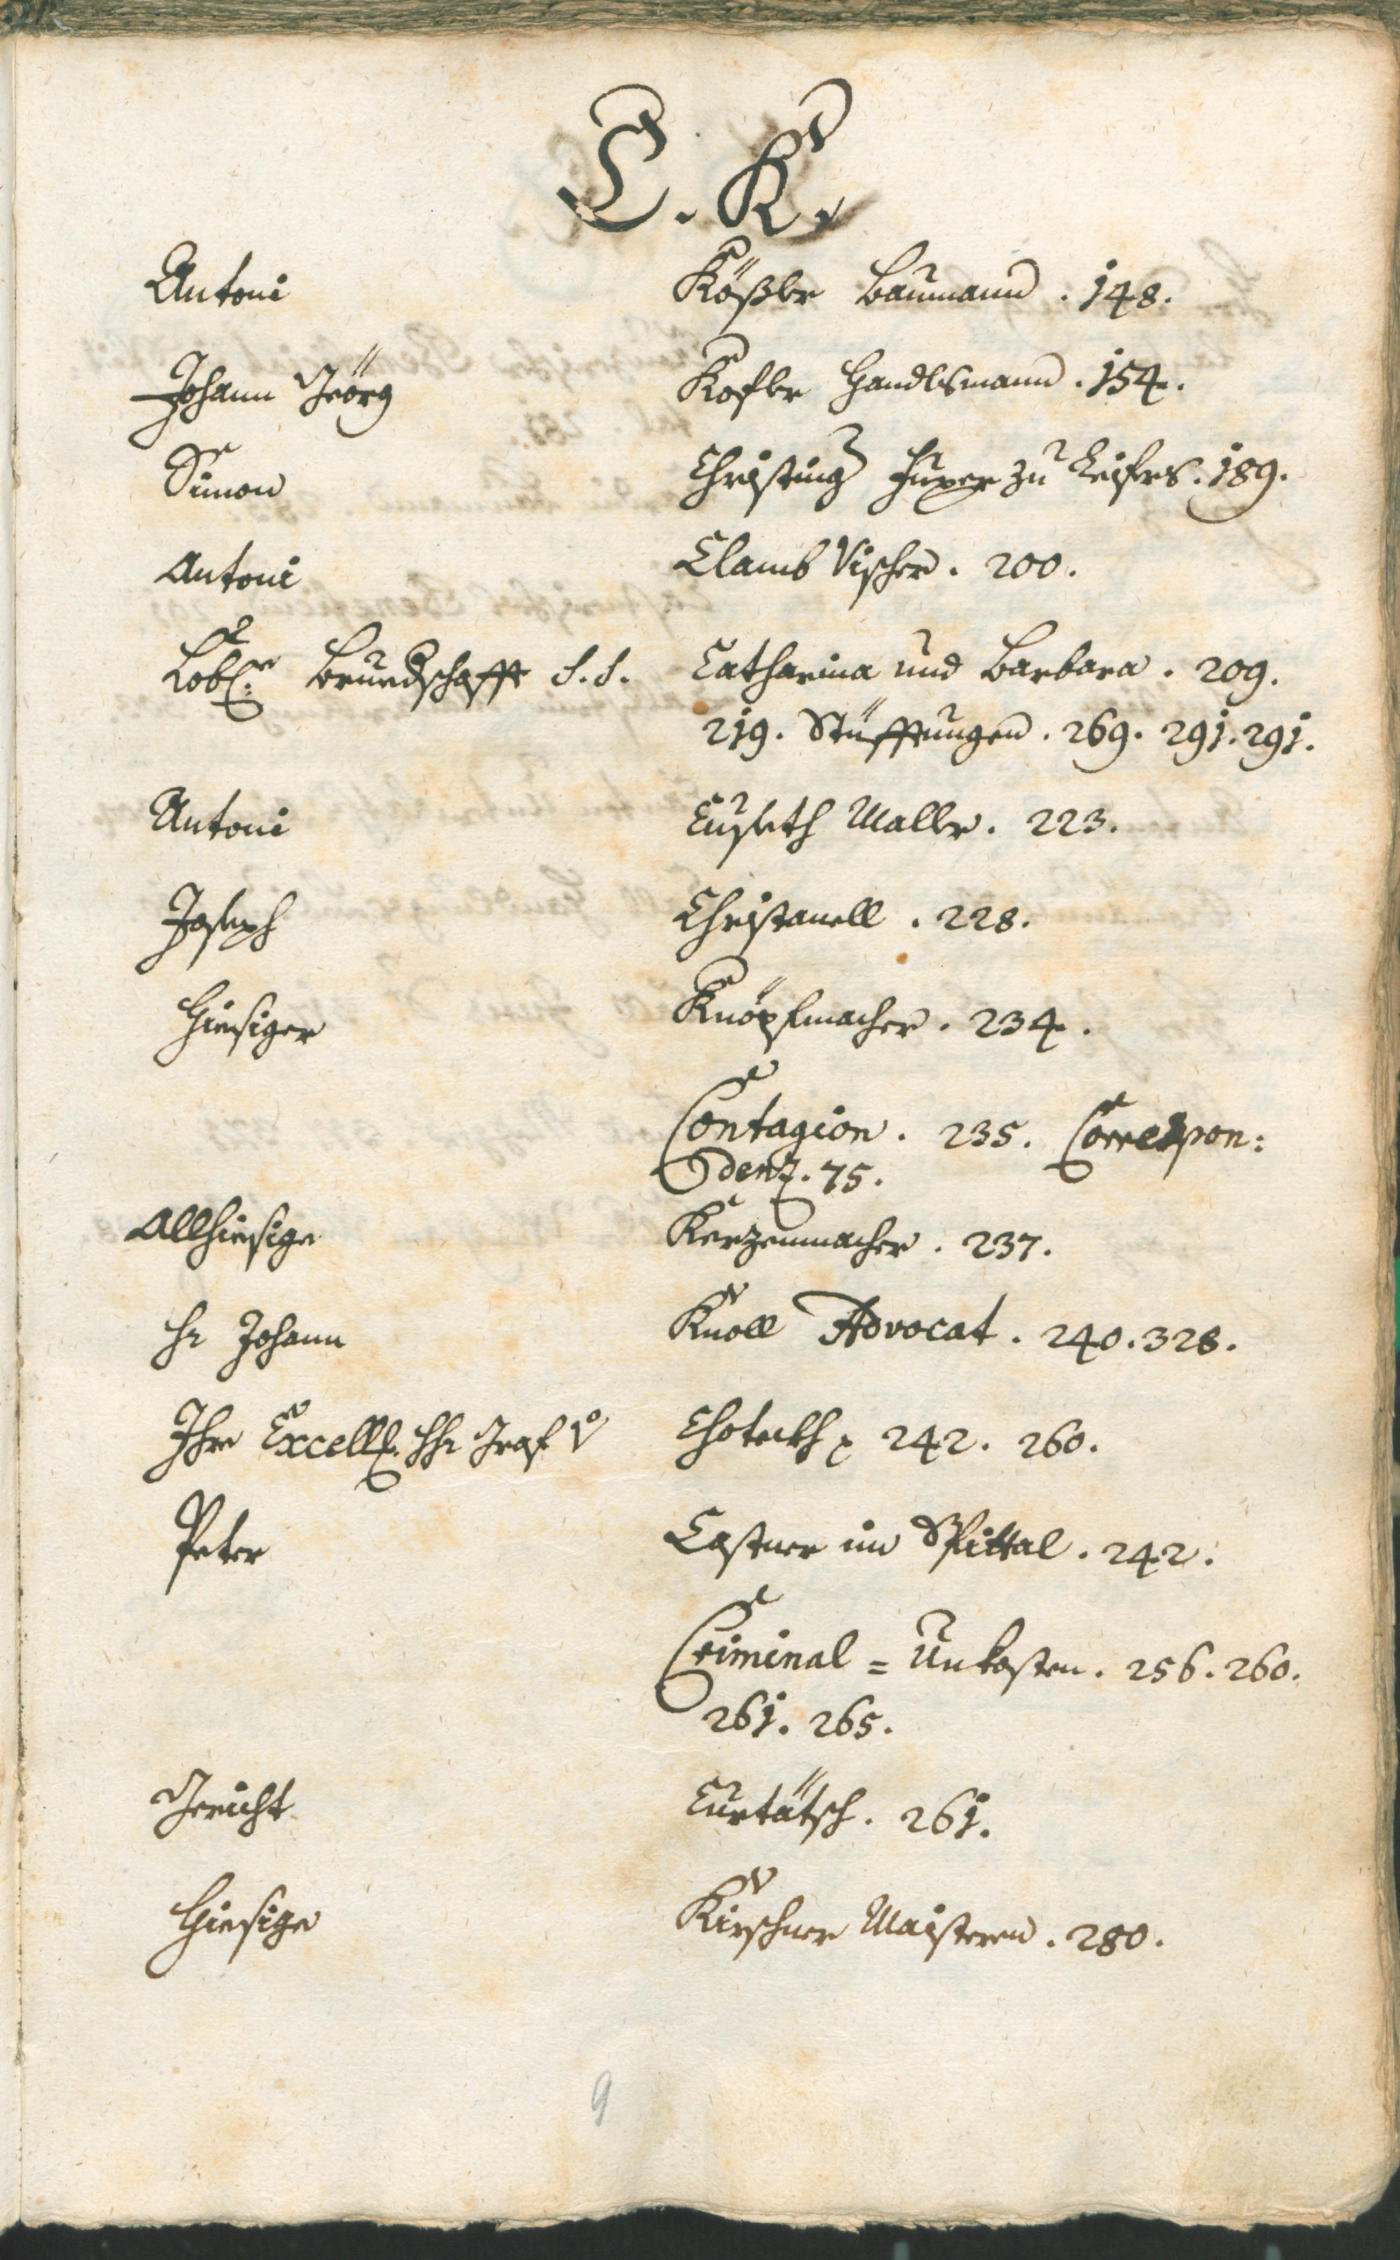 C. K.
Antoni Kößler Baumann . 148.
Johann Jeörg Kofler Handlsmann . 154.
Simon Christing zu Leifers . 189.
Antoni Clamb Vischer . 200.
Lobl: Bruedschafft S. S. Catharina und Barbara . 209.
219. Stüfftungen . 269. 291. 291.
Antoni Cuseth Maller . 223.
Joseph Christanell . 228.
Hiesiger Knöpfmacher . 234.
Contagion . 235. Correspon:
denz . 75.
Allhiesige Kerzenmacher . 237.
Hr Johann Knoll Advocat . 240. 328.
Ihre Excell. HHr Graf v Chotekh 242. 260.
Peter Castner im Spittal . 242.
Criminal = Unkosten . 256. 260.
261. 265.
Gericht Curtätsch . 261.
Hiesige Kirschner Maistern . 280.
9